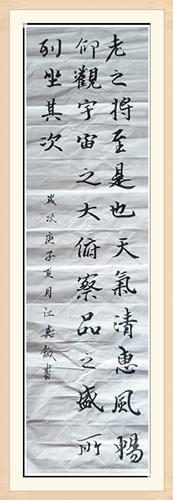 老之将至是也天氣清惠風暢
仰觀宇宙之大俯察品之盛所
列坐其次
歲次庚子夏月江書